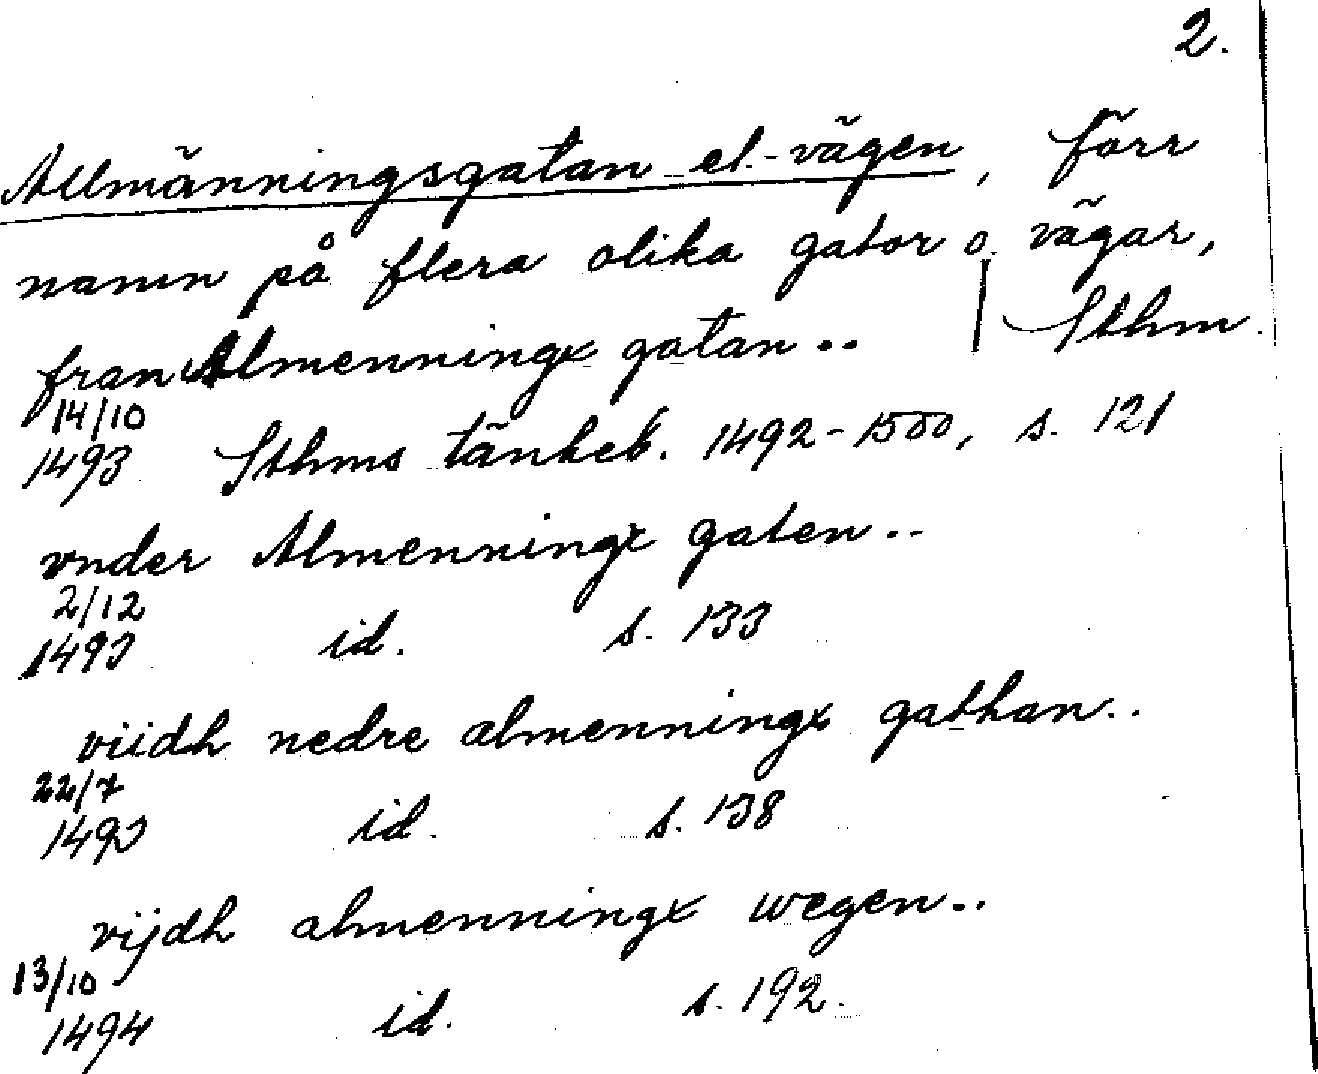 2.
Allmänningsgatan el. -vägen, förr
namn på flera olika gator o. vägar,
fran Almenningx gatan.. | Sthm.
14/10
1493 Sthms tänkeb. 1492-1500, s. 121
vnder Almenningx gaten..
2/12
1493 id. s. 133
viidh nedre almenningx gathan..
22/7
1493 id. s. 138
vijdh almenningx wegen..
13/10
1494 id. s. 192.